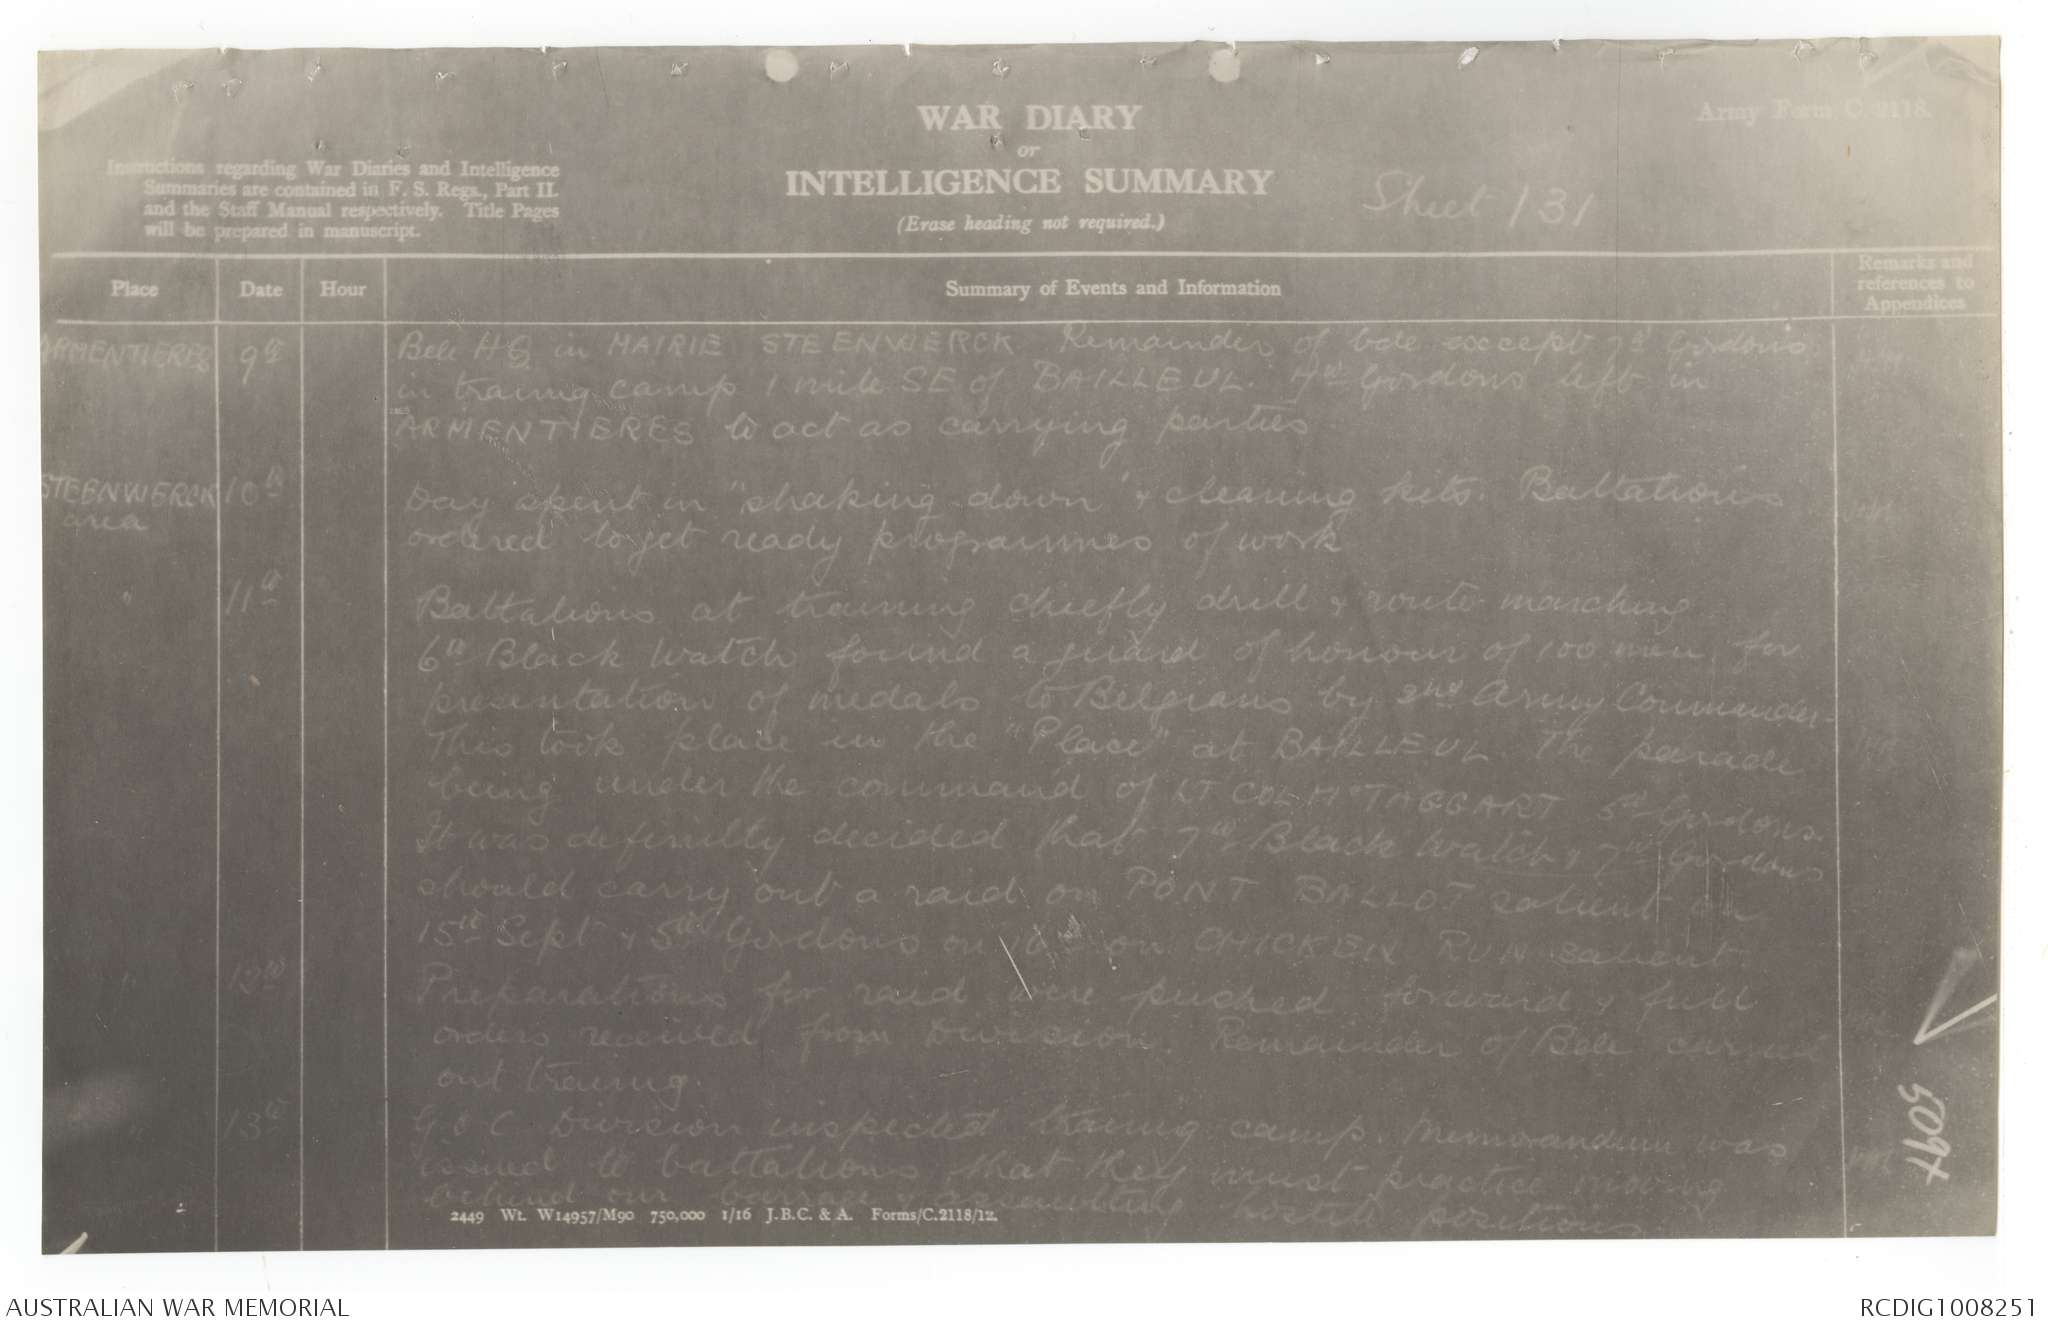 WAR DIARY
or
INTELLIGENCE SUMMARY
(Erase heading not required.)
Army Form C. 2118.
Instructions regarding War Diaries and Intelligence
Summaries are contained in F. S. Regs., Part II.
and the Staff Manual respectively. Title Pages
will be prepared in manuscript.
Sheet 131
Place Date Hour Summary of Events and Information Remarks and
references to
Appendices
ARMENTIERES 9th Bde HQ in MAIRIE STEENWERCK Remainder of bde except 7th Gordons
in traing camp 1 mile SE of BAILLEUL. 7th Gordons left in
ARMENTIERES to act as carrying parties
STEENWERCK 10th Day spent in "shaking down" & cleaning kits. Battalions
area
ordered to get ready programmes of work
" 11th Battalions at training chiefly drill & route marching
6th Black Watch found a guard of honour of 100 men for
presentation of medals to Belgians by 2nd Army Commander.
This took place in the "Place" at BAILLEUL. The parade
being under the command of LT COL McTAGGART 5th Gordons.
It was definitly decided that 7th Black Watch & 7th Gordons
should carry out a raid on PONT BALLOT salient on
15th Sept & 5th Gordons on 16th on CHICKEN RUN salient.
" 12th Preparations for raid were pushed forward & full
orders received from Division. Remainder of Bde carried
out traing.
" 13th G.O.C Division inspected traing camp. Memorandum was
issued to battalions that they must practice moving
behind our barrage & assaulting hostile positions
2449 Wt. W14957/M90 750,000 1/16 J.B.C. & A. Forms/C.2118/12.
5094
AUSTRALIAN WAR MEMORIAL
RCDIG1008251